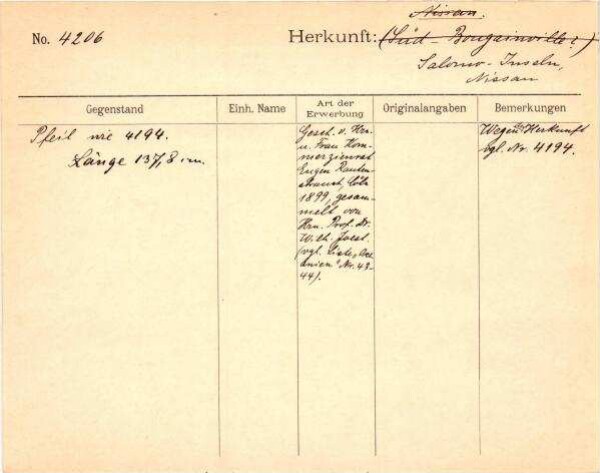 Nissan.
No. 4206
Herkunft: (Süd-Bougainville?)
Salomo-Inseln,
Nissan
Gegenstand
Einh. Name
Art der
Erwerbung
Originalangaben
Bemerkungen
Pfeil wie 4194.
Länge 137,8 cm.
Gesch. v. Herrn
u. Frau Kom-
merzienrat
Eugen Rauten-
strauch, Cöln
1899, gesam-
melt von
Hrn. Prof. Dr.
Wilh. Joest.
(vgl. Liste „Oce-
anien" Nr. 43-
44).
Wegen der Herkunft
vgl. Nr. 4194.